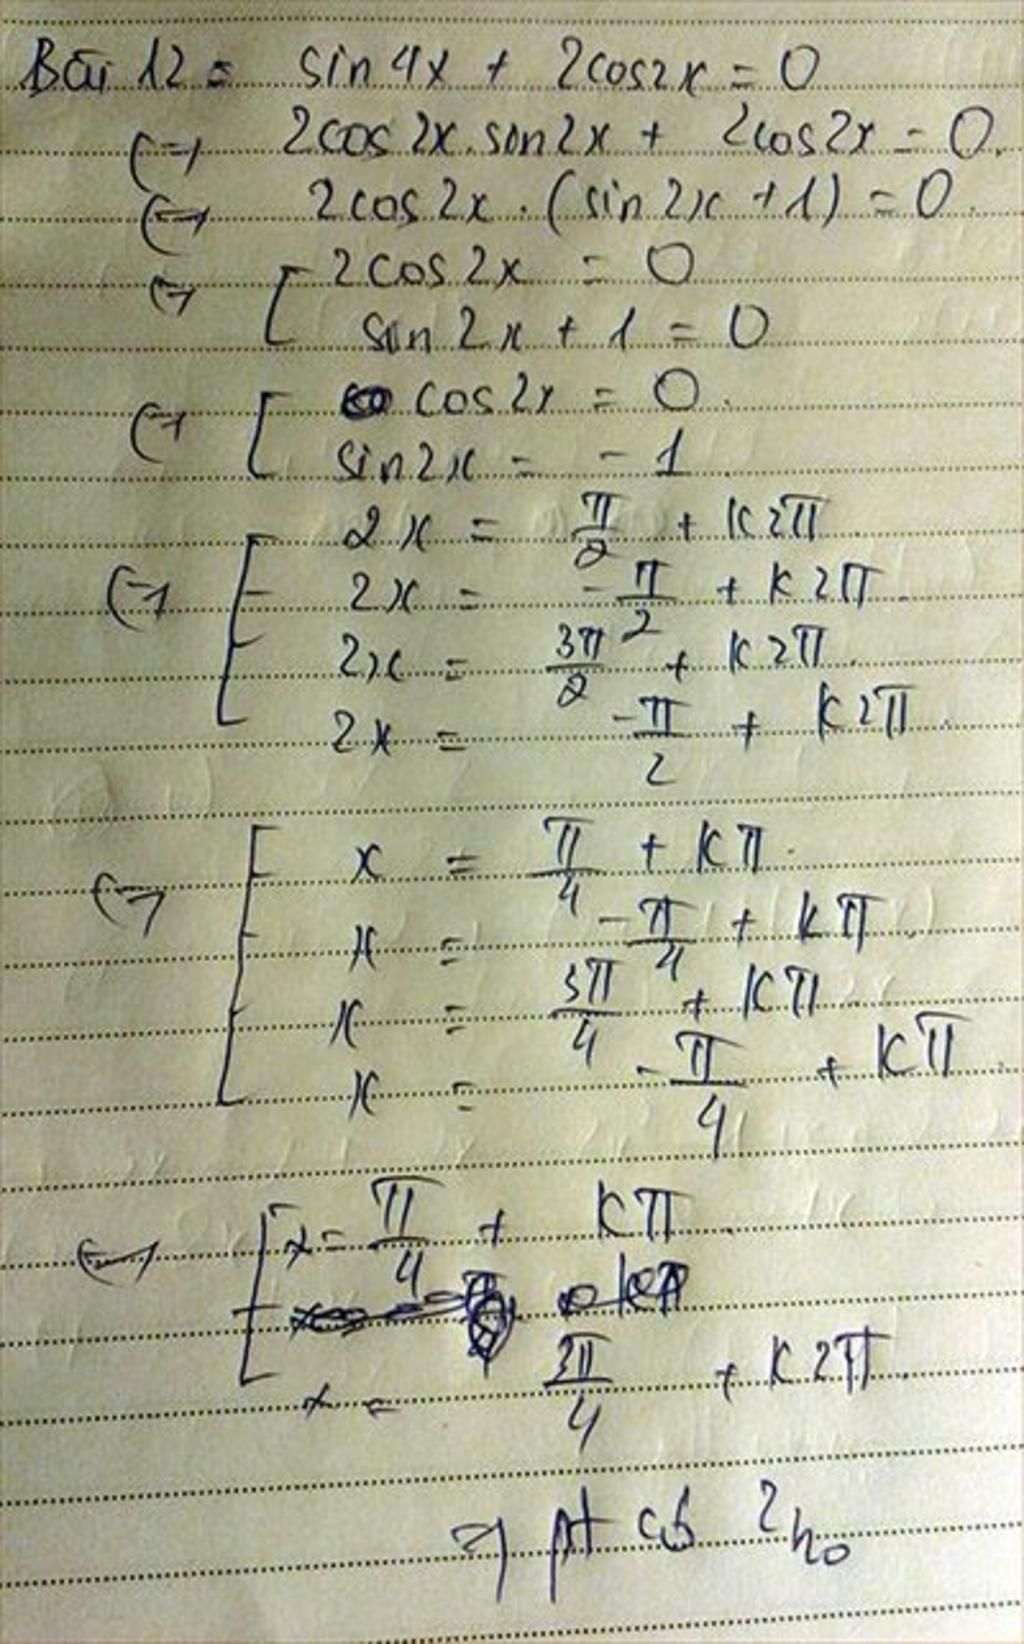 Bài 12 = sin 4x + 2cos2x = 0
(=) 2cos 2x . sin2x + 2cos2x = 0.
(=) 2cos 2x . (sin 2x + 1) = 0.
(=) [ 2cos 2x = 0
sin 2x + 1 = 0
(=) [ cos 2x = 0.
sin 2x = - 1
2x = π/2 + k2π
(=) [ 2x = -π/2 + k2π
2x = 3π/2 + k2π
2x = -π/2 + k2π.
x = π/4 + kπ.
(=) [ x = -π/4 + kπ.
x = 3π/4 + kπ
x = -π/4 + kπ.
(=) [ x = π/4 + kπ.
x = 3π/4 + k2π.
=) pt có 2 no